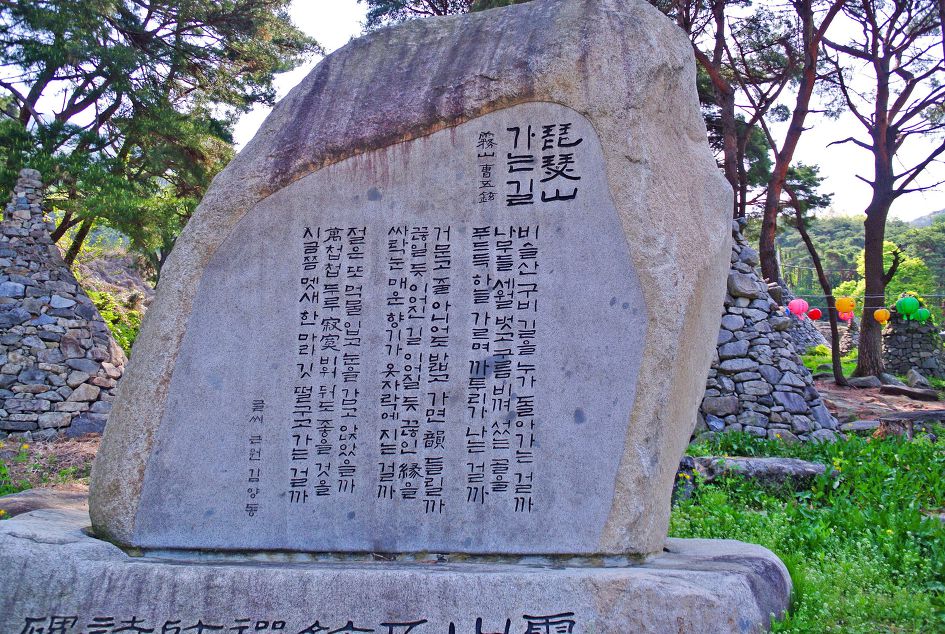 琵瑟山
가는 길
霧山 曺五鉉
비슬산 구비 길을 누가 돌아가는 걸까
나무들 세월 벗고 구름 비껴 섰는 골을
푸드득 하늘 가르며 까투리가 나는 걸까
거문고 줄 아니어도 밟고 가면 韻 들릴까
끊일 듯 이어진 길 이어질 듯 끊인 緣을
싸락눈 매운 향기가 옷자락에 지는 걸까
절은 또 먹물 입고 눈을 감고 앉았을까
萬첩첩 두루 寂寞 비워 둬도 좋을 것을
지금쯤 멧새 한 마리 깃 떨구고 가는 걸까
글씨 근원 김양동
霧山五鉉禪師詩碑